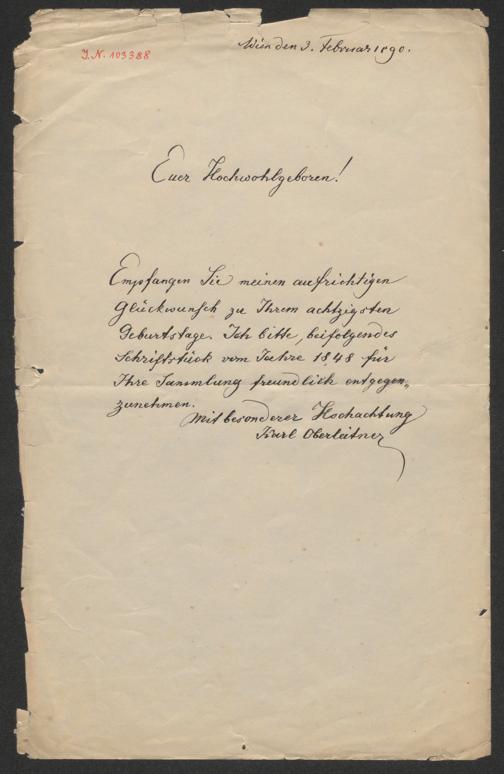 Wien den 3. Februar 1890.
J.N. 103388
Euer Hochwohlgeboren!
Empfangen Sie meinen aufrichtigen
Glückwunsch zu Ihrem achtzigsten
Geburtstage. Ich bitte, beifolgendes
Schriftstück vom Jahre 1848 für
Ihre Sammlung freundlich entgegen„
zunehmen.
Mit besonderer Hochachtung
Karl Oberleitner